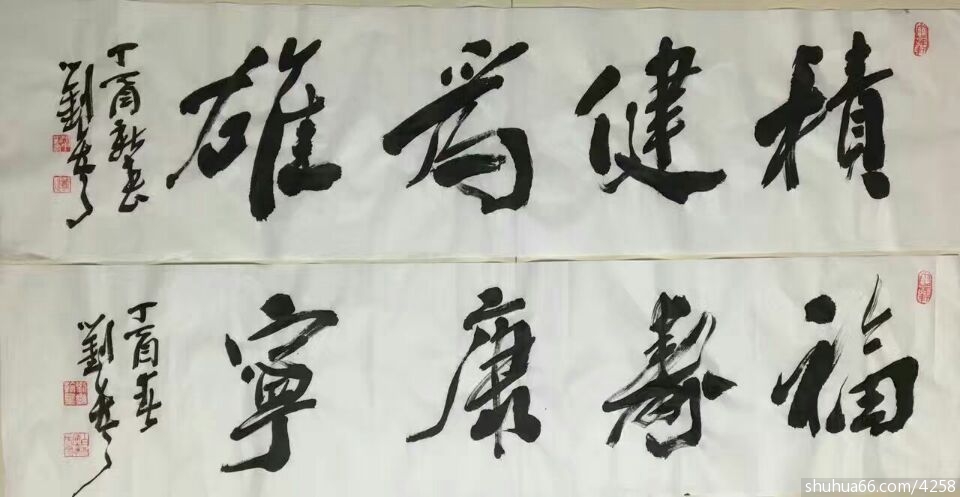 積健為雄
丁酉新春
劉
福壽康寧
丁酉春
劉
shuhua66.com/4258